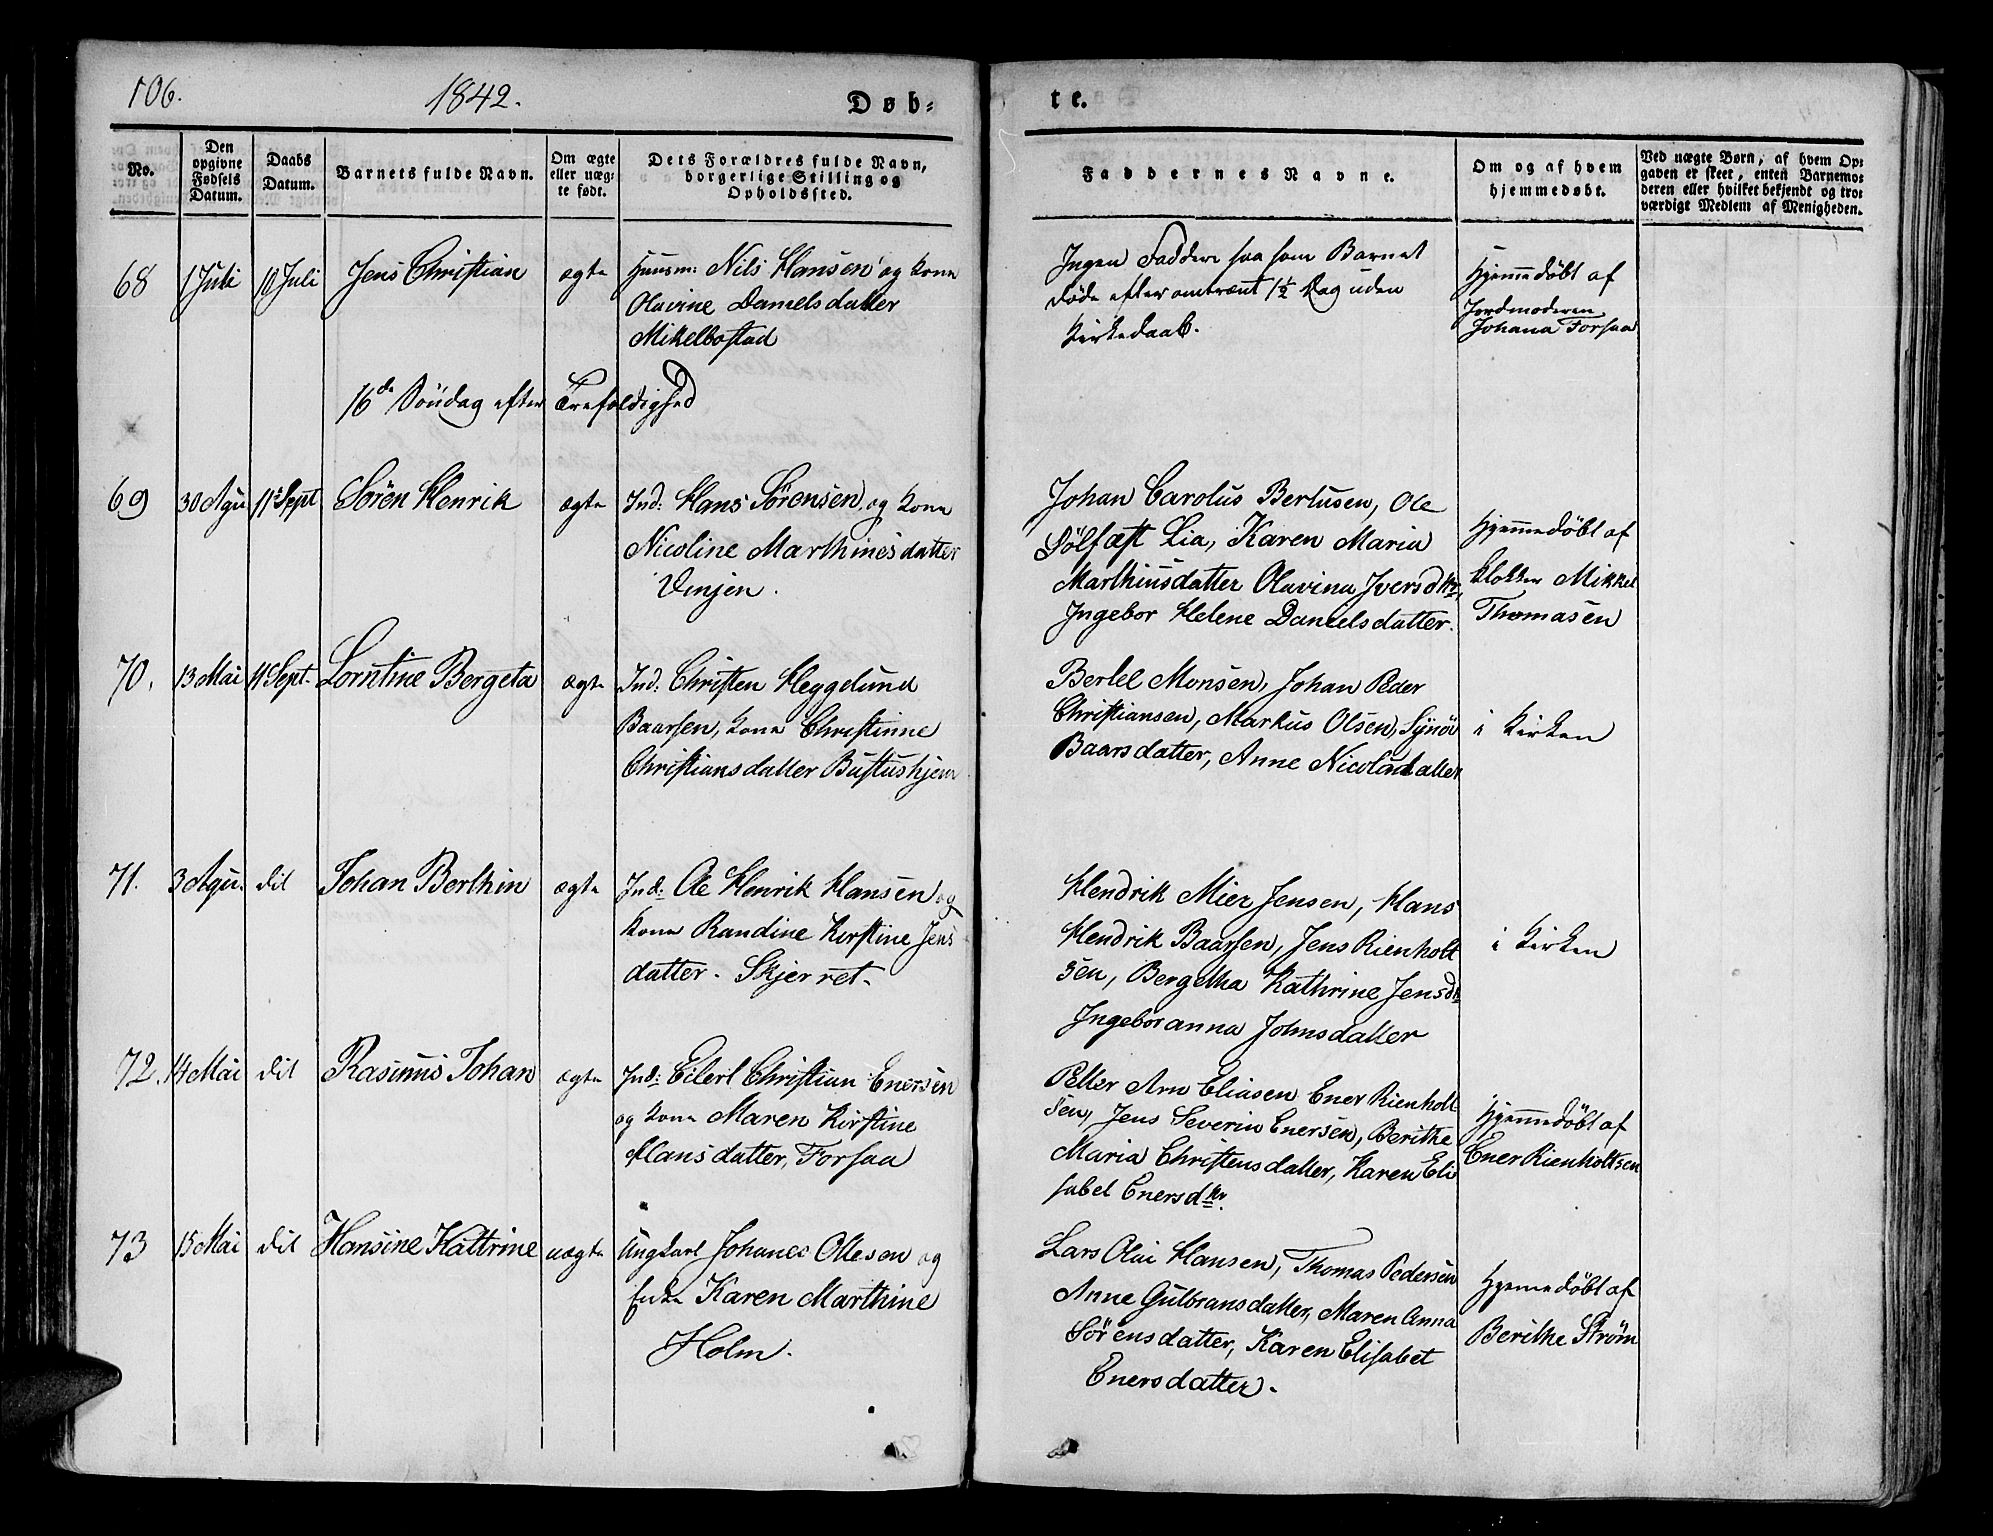 106.
1842.
Døb-
te.
No.
Den
opgivne
Fødsels
Datum.
Daabs
Datum.
Barnets fulde Navn.
Om ægte
eller uæg-
te født.
Dets Forældres fulde Navn,
borgerlige Stilling og
Opholdssted.
Faddernes Navne.
Om og af hvem
hjemmedøbt.
Ved uægte Børn, af hvem Op-
gaven er skeet, enten Barnemo-
deren eller hvilket bekjendt og tro-
værdigt Medlem af Menigheden.
68
1 Juli
10 Juli
Jens Christian
ægte
Huusm: Nils Hansen og Kone
Olavine Danielsdatter
Mikelbostad
Ingen Faddere saa som Barnet
døde efter omtrent 1½ Dag uden
Kirkedaab.
Hjemmedöbt af
Jordmoderen
Johana Forsaa
16de Söndag efter Trefoldighed
69
30 Agu
11 Sept
Sören Henrik
ægte
Ind: Hans Sörensen og Kone
Nicoline Marthinesdatter
Vinjen.
Johan Carolus Bertusen, Ole
Sölfæst Lia, Karen Maria
Marthinsdatter Olavina Iversdtr,
Ingebor Helene Danielsdatter.
Hjemmedöbt af
Klokker Mikkel
Thomasen
70.
13 Mai
11 Sept.
Lorntine Bergeta
ægte
Ind: Christen Heggelund
Baarsen, Kone Christinne
Christiansdatter Bustushjem
Bertel Monsen, Johan Peder
Christiansen, Markus Olsen, Synöv
Baarsdatter, Anne Nicoladatter
i Kirken
71.
3 Agu.
dit
Johan Berthin
ægte
Ind: Ole Henrik Hansen og
Kone Randine Kirstine Jens
datter. Skjerret.
Hendrik Mier Jensen, Hans
Hendrik Baarsen, Jens Rienholt
sen, Bergetha Kathrine Jensdtr
Ingeboranna Johnsdatter
i Kirken
72.
14 Mai
dit
Rasmus Johan
ægte
Ind: Eilert Christian Enersen
og Kone Maren Kirstine
Hansdatter, Forsaa
Petter Arn Eliasen Ener Rienholt
sen, Jens Severin Enersen, Berithe
Maria Christensdatter, Karen Eli
sabet Enersdtr.
Hjemmedöbt af
Ener Rienholtsen
73
15 Mai
dit
Hansine Kattrine
uægte
Ungkarl Johanes Ollesen og
Enke Karen Marthine
Holm.
Lars Olai Hansen, Thomas Pedersen
Anne Gulbransdatter, Maren Anna
Sörensdatter, Karen Elisabet
Enersdatter.
Hjemmedöbt af
Berithe Ström